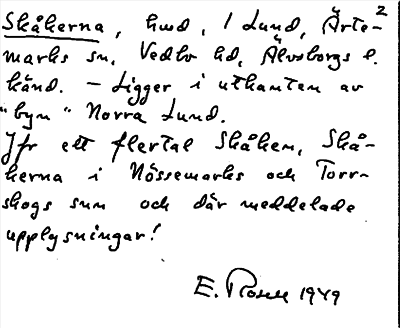 2
Skåkerna, hmd, 1 Lund, Ärte-
marks sn, Vedbo hd, Älvsborgs l.
känd. – Ligger i utkanten av
"byn" Norra Lund.
Jfr ett flertal Skåken, Skå-
kerna i Nössemarks och Torr-
skogs snn och där meddelade
upplysningar!
E. 1949